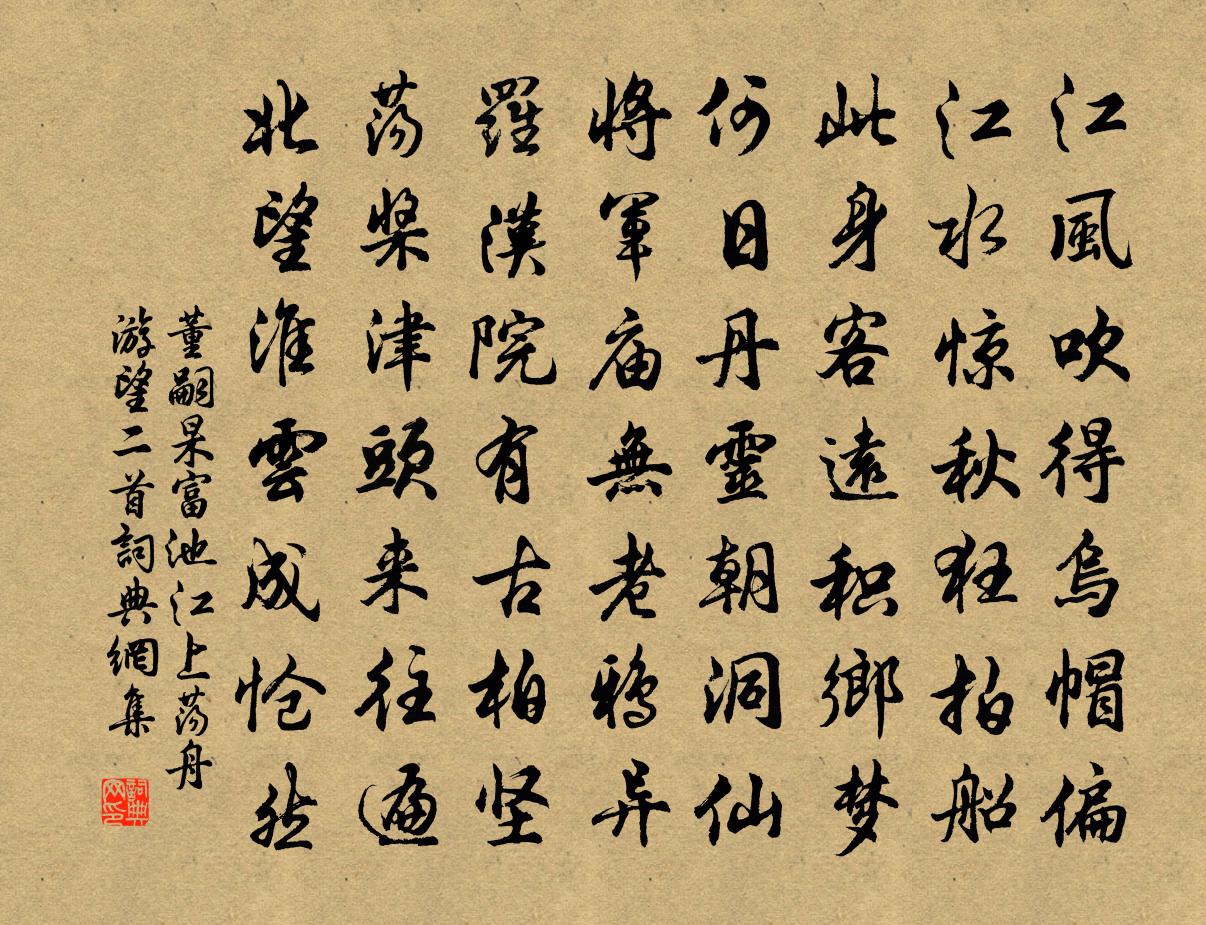 江風吹得烏帽偏
江水惊秋狂拍船
此身客遠积鄉梦
何日丹靈朝洞仙
將軍庙無老鴉异
羅漢院有古柏坚
蕩槳津頭来往遍
北望淮雲成怆然
董嗣杲富池江上蕩舟
游望二首詞典網集
詞典
网印